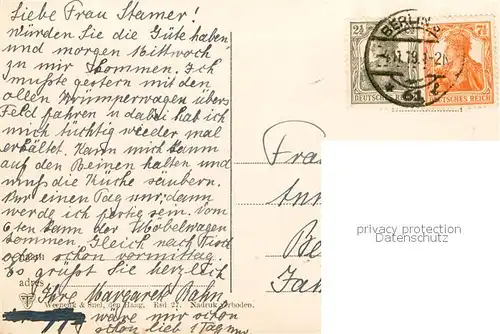 Liebe Frau Stamer!
Würden Sie die Güte haben
und morgen Mittwoch
zu mir kommen. Ich
mußte gestern mit den
ollen Krümperwagen übers
Feld fahren u dabei hat ich
mich tüchtig wieder mal
erkältet. Kann mich kaum
auf den Beinen halten und
muß die Küche säubern.
Nur einen Tag nur; dann
werde ich fertig sein. Vom
6ten kann der Möbelwagen
kommen. Gleich nach Tisch
oder schon vormittag.
Es grüßt Sie herzlich
adres
Ihre Margarete Bahn
Weenenk & Snel, den Haag. Nadruk verboden.
wäre mir schon
schon lieb 1 Tag nur
2½
7½
DEUTSCHES REICH
BERLIN
11.19.
61
Frau
Ann
Be
privacy protection
Datenschutz